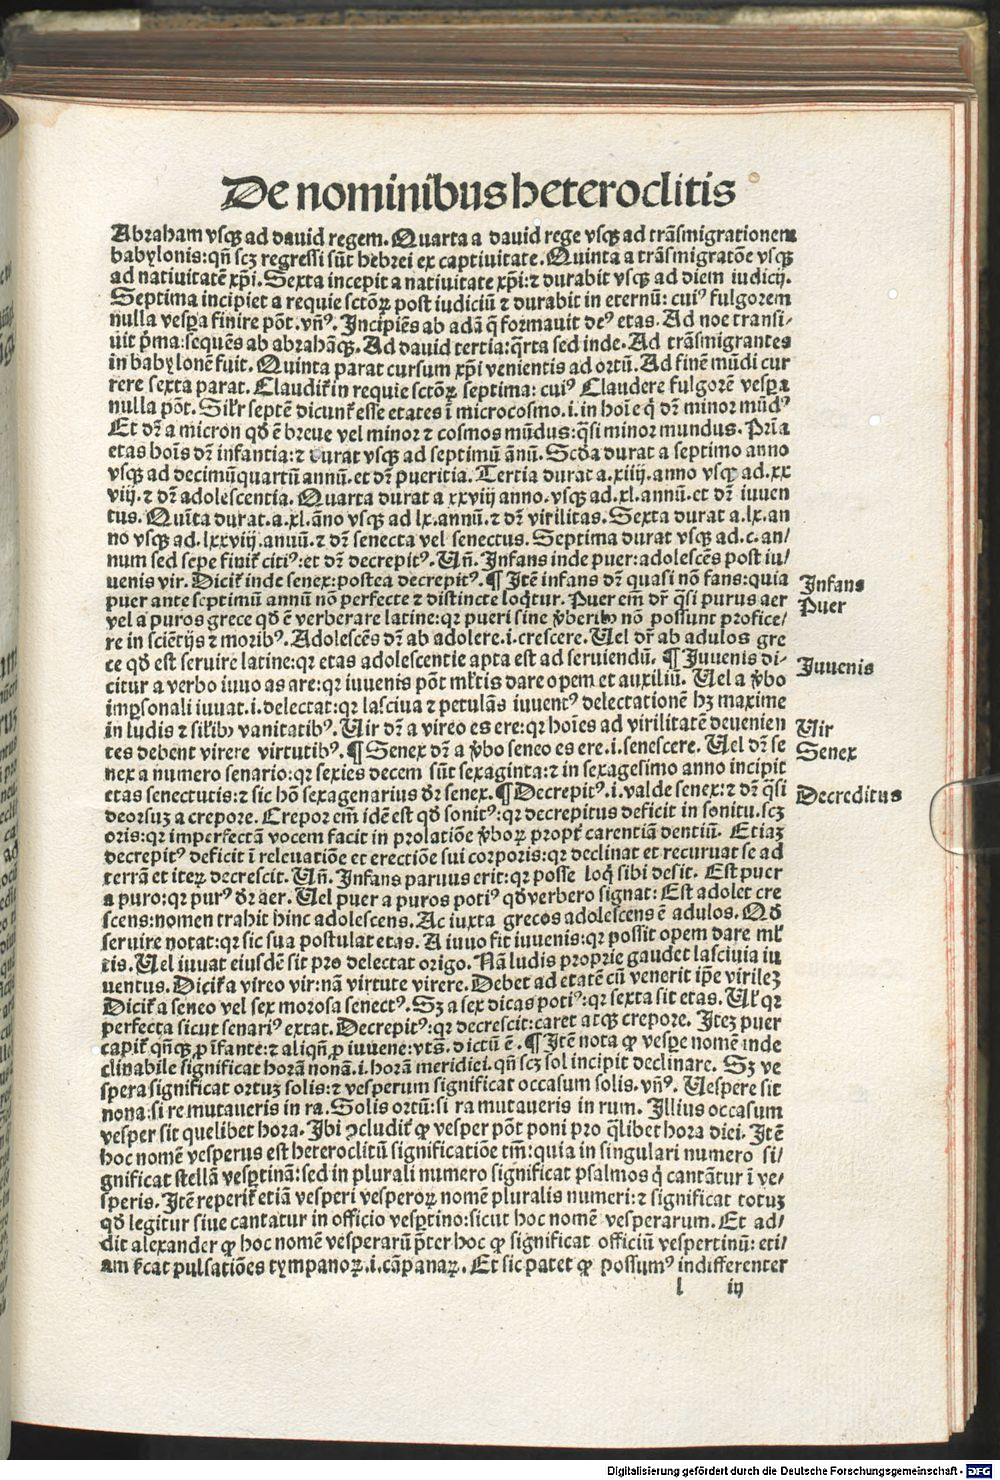 De nominibus heteroclitis
Abraham vsqꝫ ad dauid regem. Quarta a dauid rege vsqꝫ ad trãsmigrationem
babylonis: qñ scꝫ regressi sũt hebrei ex captiuitate. Quinta a trãsmigratõe vsqꝫ
ad natiuitatẽ xp̃i. Sexta incepit a natiuitate xp̃i: ⁊ durabit vsqꝫ ad diem iudicij.
Septima incipiet a requie sctõꝝ post iudiciũ ⁊ durabit in eternũ: cuiꝰ fulgorem
nulla vesp̱a finire põt. vñꝰ. Incipiẽs ab adã q̃ formauit deꝰ etas. Ad noe transi⸗
uit p̃ma: sequẽs ab abrahãqꝫ. Ad dauid tertia: q̃rta sed inde. Ad trãsmigrantes
in babylonẽ fuit. Quinta parat cursum xp̃i venientis ad ortũ. Ad finẽ mũdi cur
rere sexta parat. Claudit᷑ in requie sctõꝝ septima: cuiꝰ Claudere fulgorẽ vesp̱a
nulla põt. Silr̃ septẽ dicunt᷑ esse etates ĩ microcosmo .i. in hoĩe q̃ dr̃ minor mũdꝰ
Et dr̃ a micron qđ ẽ breue vel minor ⁊ cosmos mũdus: q̃si minor mundus. Prĩa
etas hoĩs dr̃ infantia: ⁊ durat vsqꝫ ad septimũ ãnũ. Scđa durat a septimo anno
vsqꝫ ad decimũquartũ annũ. et dr̃ pueritia. Tertia durat a .xiiij. anno vsqꝫ ad .xx
viij. ⁊ dr̃ adolescentia. Quarta durat a xxviij anno. vsqꝫ ad .xl. annũ. et dr̃ iuuen
tus. Quĩta durat. a .xl. ãno vsqꝫ ad lx. annũ. ⁊ dr̃ virilitas. Sexta durat a .lx. an
no vsqꝫ ad .lxxviij. annũ. ⁊ dr̃ senecta vel senectus. Septima durat vsqꝫ ad .c. an⸗
num sed sepe finit᷑ citiꝰ: et dr̃ decrepitꝰ. Uñ. Infans inde puer: adolescẽs post iu⸗
uenis vir. Dicit᷑ inde senex: postea decrepitꝰ. ¶ Itẽ infans dr̃ quasi nõ fans: quia
puer ante septimũ annũ nõ perfecte ⁊ distincte loq̃tur. Puer em̃ dr̃ q̃si purus aer
vel a puros grece qđ ẽ verberare latine: qꝛ pueri sine v̾beribꝰ nõ possunt profice⸗
re in sciẽtijs ⁊ moribꝰ. Adolescẽs dr̃ ab adolere .i. crescere. Uel dr̃ ab adulos gre
ce qđ est seruire latine: qꝛ etas adolescentie apta est ad seruiendũ. ¶ Iuuenis di⸗
citur a verbo iuuo as are: qꝛ iuuenis põt ml̃tis dare opem et auxiliũ. Uel a v̾bo
imp̱sonali iuuat .i. delectat: qꝛ lasciua ⁊ petulãs iuuentꝰ delectationẽ hꝫ maxime
in ludis ⁊ silibꝰ vanitatibꝰ. Uir dr̃ a vireo es ere: qꝛ hoĩes ad virilitatẽ deuenien
tes debent virere virtutibꝰ. ¶ Senex dr̃ a v̾bo seneo es ere .i. senescere. Uel dr̃ se
nex a numero senario: qꝛ sexies decem sũt sexaginta: ⁊ in sexagesimo anno incipit
etas senectutis: ⁊ sic hõ sexagenarius dr̃ senex. ¶ Decrepitꝰ .i. valde senex: ⁊ dr̃ q̃si
deorsuꝫ a crepore. Crepor em̃ idẽ est qđ sonitꝰ: qꝛ decrepitus deficit in sonitu. scꝫ
oris: qꝛ imperfectã vocem facit in prolatiõe v̾boꝝ propt̾ carentiã dentiũ. Etiaꝫ
decrepitꝰ deficit ĩ releuatiõe et erectiõe sui corporis: qꝛ declinat et recuruat se ad
terrã et iteꝝ decrescit. Uñ. Infans paruus erit: qꝛ posse loq̃ sibi desit. Est puer
a puro: qꝛ purꝰ dr̃ aer. Uel puer a puros potiꝰ qđ verbero signat: Est adolet cre
scens: nomen trahit hinc adolescens. Ac iuxta grecos adolescens ẽ adulos. Qđ
seruire notat: qꝛ sic sua postulat etas. A iuuo fit iuuenis: qꝛ possit opem dare ml̃
tis. Uel iuuat eiusdẽ sit pro delectat origo. Nã ludis proprie gaudet lasciuia iu
uentus. Dicit᷑ a vireo vir: nã virtute virere. Debet ad etatẽ cũ venerit ip̃e virileꝫ
Dicit᷑ a seneo vel sex morosa senectꝰ. Sꝫ a sex dicas potiꝰ: qꝛ sexta sit etas. Ul̃ qꝛ
perfecta sicut senariꝰ extat. Decrepitꝰ: qꝛ decrescit: caret atqꝫ crepore. Iteꝫ puer
capit᷑ qñqꝫ ꝓ ĩfante: ⁊ aliqñ ꝓ iuuene: vts̃. dictũ ẽ. ¶ Itẽ nota ꝙ vespe nomẽ inde
clinabile significat horã nonã .i. horã meridiei. qñ scꝫ sol incipit declinare. Sꝫ ve
spera significat ortuꝫ solis: ⁊ vesperum significat occasum solis. vñꝰ. Uespere sit
nona: si re mutaueris in ra. Solis ortũ: si ra mutaueris in rum. Illius occasum
vesper sit quelibet hora. Ibi ꝯcludit᷑ ꝙ vesper põt poni pro q̃libet hora diei. Itẽ
hoc nomẽ vesperus est heteroclitũ significatiõe tm̃: quia in singulari numero si⸗
gnificat stellã vesp̱tinã: sed in plurali numero significat psalmos q̃ cantãtur ĩ ve⸗
speris. Itẽ reperit᷑ etiã vesperi vesperoꝝ nomẽ pluralis numeri: ⁊ significat totuꝫ
qđ legitur siue cantatur in officio vesp̱tino: sicut hoc nomẽ vesperarum. Et ad⸗
dit alexander ꝙ hoc nomẽ vesperarũ p̃ter hoc ꝙ significat officiũ vespertinũ: eti⸗
am s̃cat pulsatiões tympanoꝝ .i. cãpanaꝝ. Et sic patet ꝙ possumꝰ indifferenter
l iij
Infans
Puer
Iuuenis
Uir
Senex
Decreditus
Digitalisierung gefördert durch die Deutsche Forschungsgemeinschaft - DFG